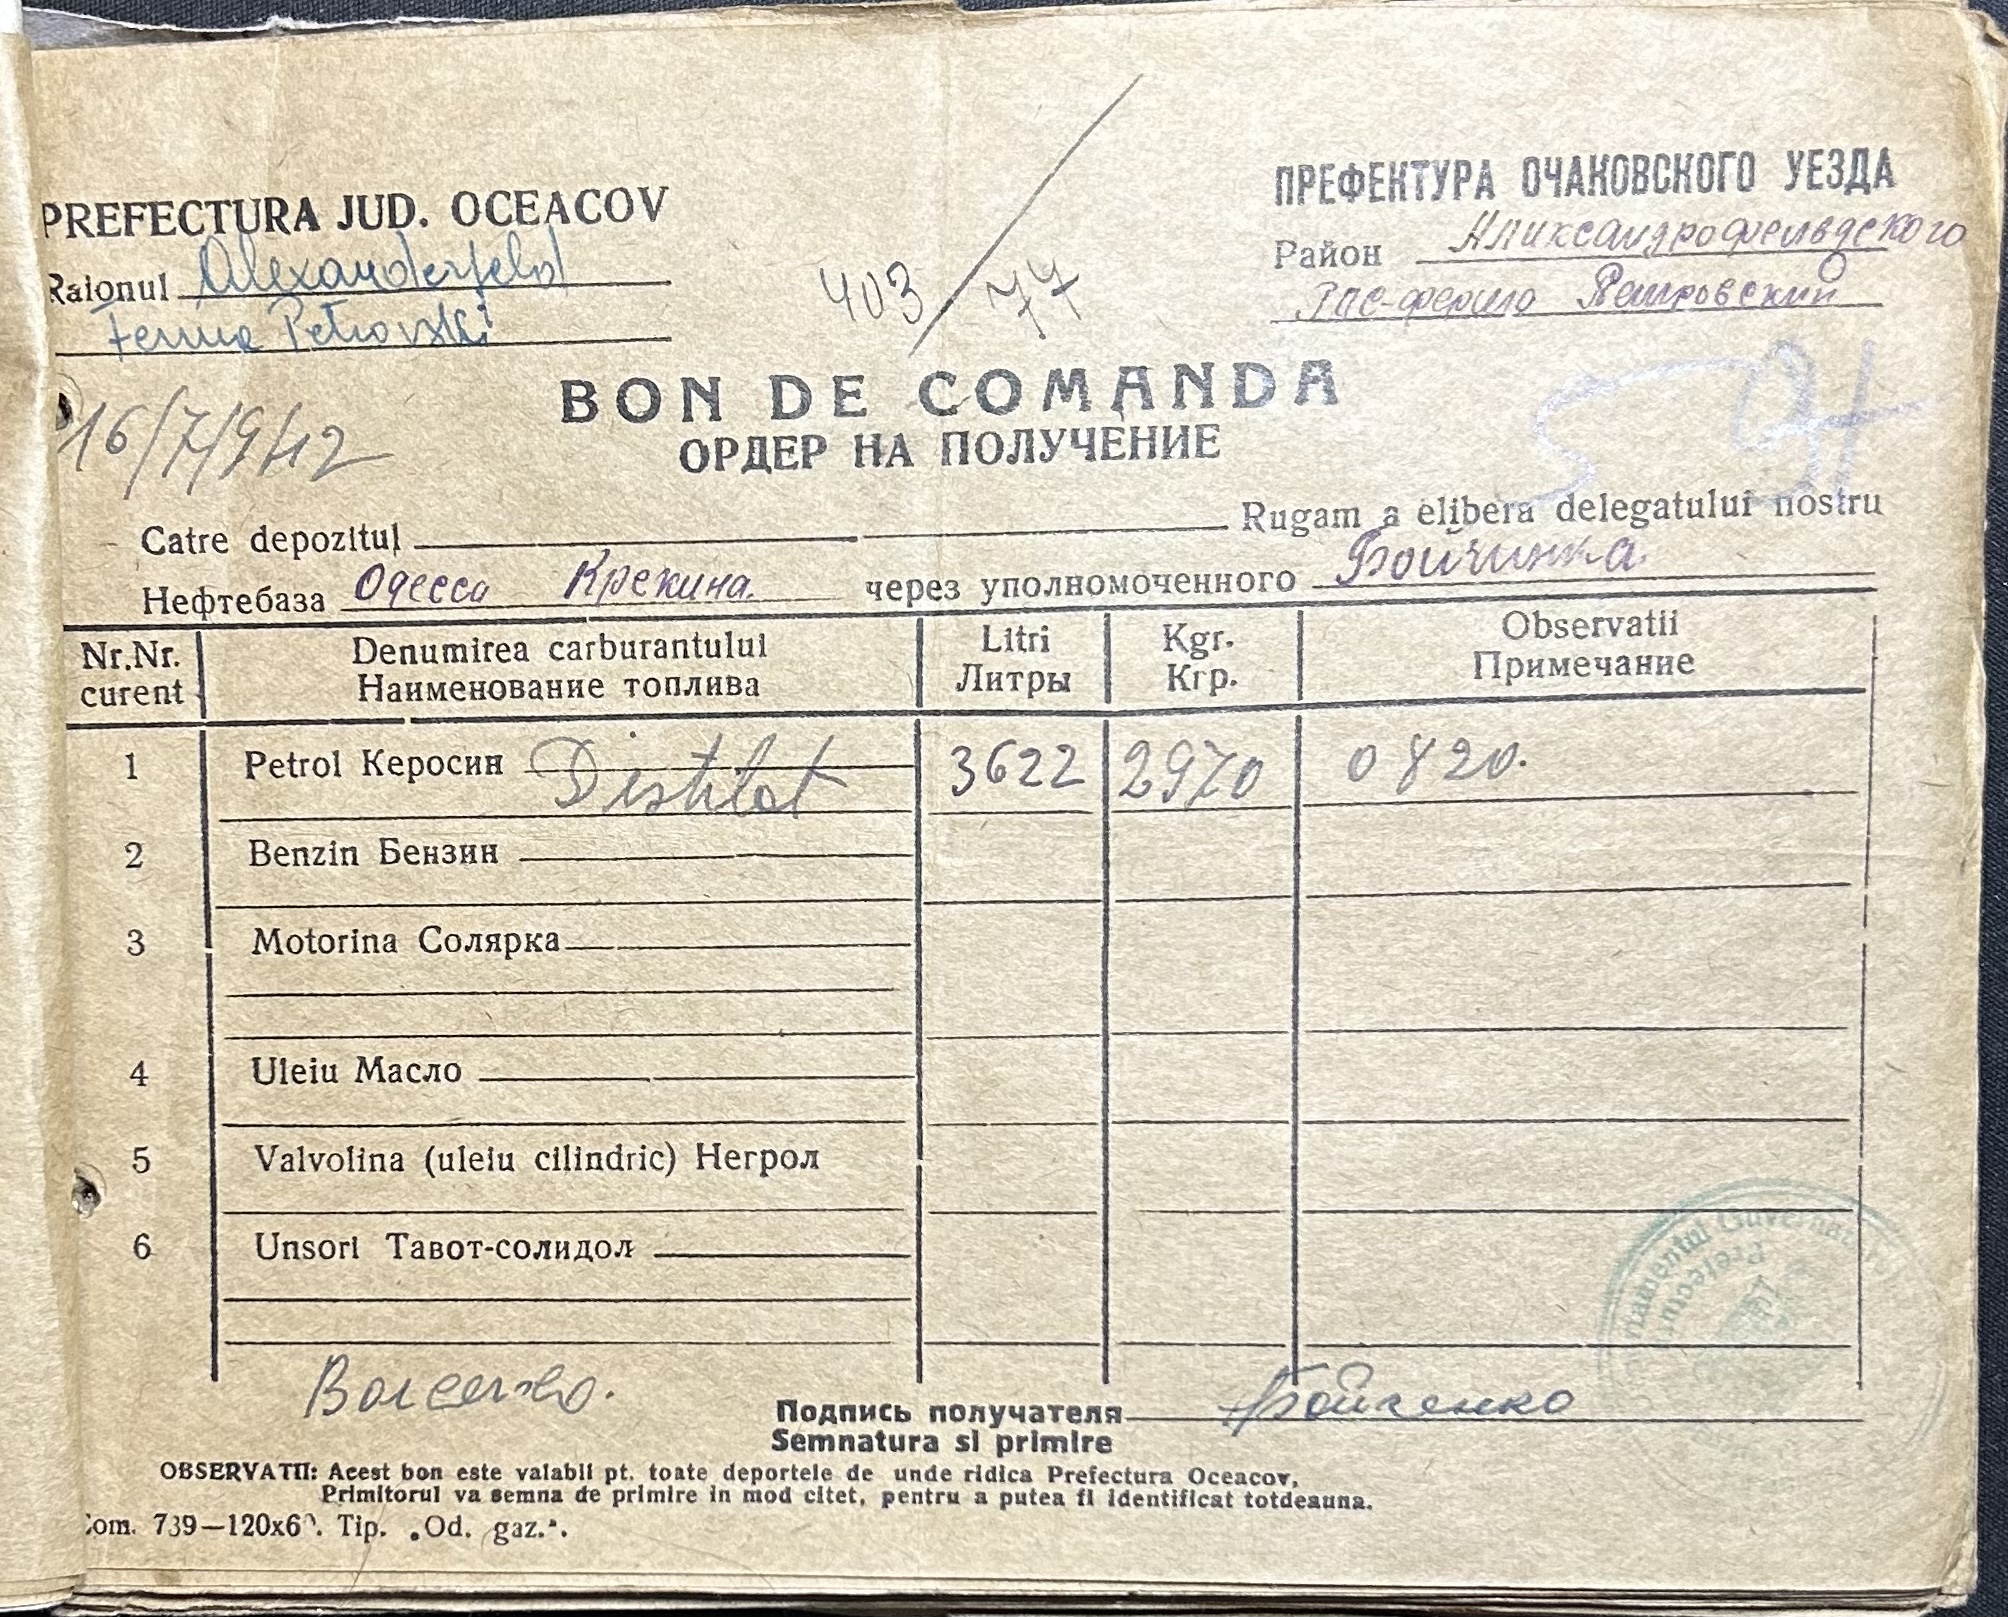 PREFECTURA JUD. OCEACOV
Raionul Alexanderfeld
Ferma Petrovski
403/77
ПРЕФЕКТУРА ОЧАКОВСКОГО УЕЗДА
Район Аликсандрофельдского
Гос-ферма Петровский
16/7/942
BON DE COMANDA
ОРДЕР НА ПОЛУЧЕНИЕ
Catre depozitul Rugam a elibera delegatului nostru
Нефтебаза Одесса Крекина. через уполномоченного Бойчинка
Nr.Nr. curent Denumirea carburantului Litri Kgr. Observatii
Наименование топлива Литры Кгр. Примечание
1 Petrol Керосин Distilat 3622 2970 0820.
2 Benzin Бензин
3 Motorina Солярка
4 Uleiu Масло
5 Valvolina (uleiu cilindric) Негрол
6 Unsori Тавот-солидол
Подпись получателя Бойченко
Semnatura si primire
OBSERVATII: Acest bon este valabil pt. toate deportele de unde ridica Prefectura Oceacov,
Primitorul va semna de primire in mod citet, pentru a putea fi identificat totdeauna.
Com. 739—120x6 . Tip. „Od. gaz.“.